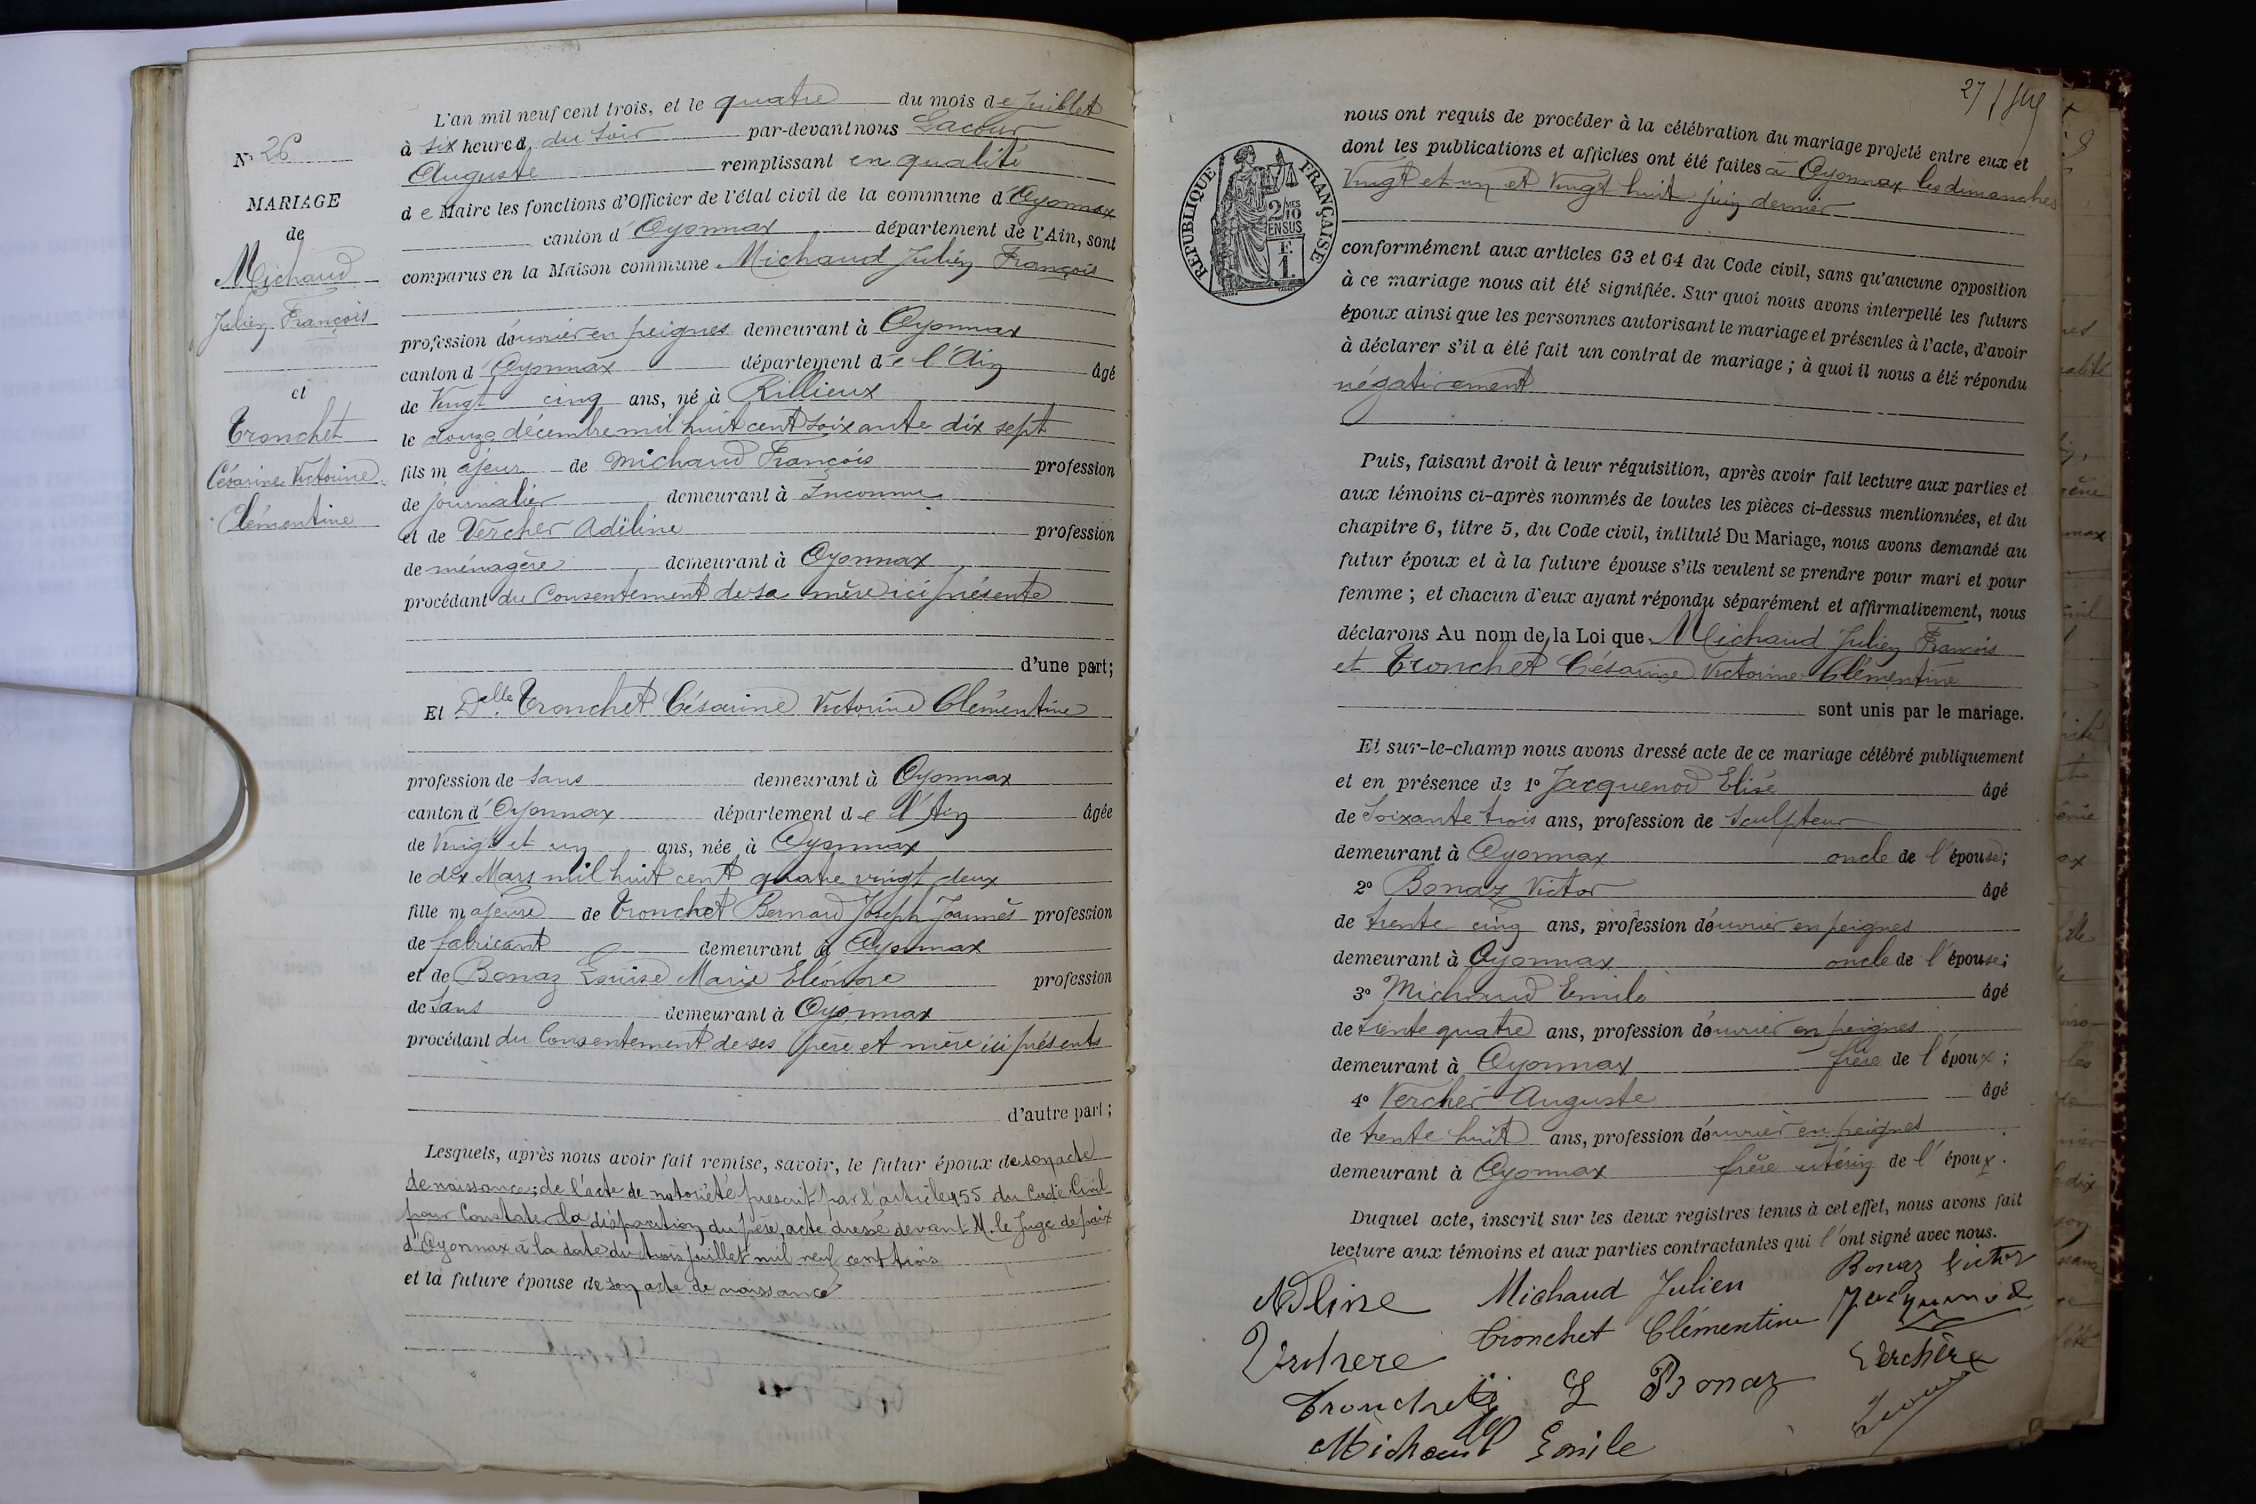 N° 26
MARIAGE
de
Michaud
Julien François
et
Tronchet
Césarine Victorine
Clémentine
L'an mil neuf cent trois, et le quatre du mois de Juillet
à six heures du soir par-devant nous Lacour
Auguste remplissant en qualité
de Maire les fonctions d'Officier de l'état civil de la commune d'Oyonnax
canton d'Oyonnax département de l'Ain, sont
comparus en la Maison commune Michaud Julien François
profession d'ouvrier en peignes demeurant à Oyonnax
canton d'Oyonnax département de l'Ain âgé
de Vingt cinq ans, né à Rillieux
le douze décembre mil huit cent soixante dix sept
fils majeur de Michaud François profession
de journalier demeurant à Inconnu
et de Vercher Adéline profession
de ménagère demeurant à Oyonnax
procédant du Consentement de sa mère ici présente
d'une part;
Et Delle Tronchet Césarine Victorine Clémentine
profession de sans demeurant à Oyonnax
canton d'Oyonnax département de l'Ain âgée
de Vingt et un ans, née à Oyonnax
le dix Mars mil huit cent quatre vingt deux
fille majeure de Tronchet Bernard Joseph Joannès profession
de fabricant demeurant à Oyonnax
et de Bonaz Louise Marie Eléonore profession
de sans demeurant à Oyonnax
procédant du Consentement de ses père et mère ici présents
d'autre part;
Lesquels, après nous avoir fait remise, savoir, le futur époux de son acte
de naissance; de l'acte de notoriété prescrit par l'article 155 du Code Civil
pour Constater la disparition du père, acte dressé devant M. le Juge de paix
d'Oyonnax à la date du trois Juillet mil neuf cent trois
et la future épouse de son acte de naissance
27
nous ont requis de procéder à la célébration du mariage projeté entre eux et
dont les publications et affiches ont été faites à Oyonnax les dimanches
Vingt et un et Vingt huit juin dernier
RÉPUBLIQUE FRANÇAISE
2/10
MES
EN SUS
F.
1.
conformément aux articles 63 et 64 du Code civil, sans qu'aucune opposition
à ce mariage nous ait été signifiée. Sur quoi nous avons interpellé les futurs
époux ainsi que les personnes autorisant le mariage et présentes à l'acte, d'avoir
à déclarer s'il a été fait un contrat de mariage; à quoi il nous a été répondu
négativement
Puis, faisant droit à leur réquisition, après avoir fait lecture aux parties et
aux témoins ci-après nommés de toutes les pièces ci-dessus mentionnées, et du
chapitre 6, titre 5, du Code civil, intitulé Du Mariage, nous avons demandé au
futur époux et à la future épouse s'ils veulent se prendre pour mari et pour
femme; et chacun d'eux ayant répondu séparément et affirmativement, nous
déclarons Au nom de la Loi que Michaud Julien François
et Tronchet Césarine Victorine Clémentine
sont unis par le mariage.
Et sur-le-champ nous avons dressé acte de ce mariage célébré publiquement
et en présence de 1° Jacquenod Elisé âgé
de Soixante trois ans, profession de Sculpteur
demeurant à Oyonnax oncle de l'épouse;
2° Bonaz Victor âgé
de trente cinq ans, profession d'ouvrier en peignes
demeurant à Oyonnax oncle de l'épouse;
3° Michaud Emile âgé
de trente quatre ans, profession d'ouvrier en peignes
demeurant à Oyonnax frère de l'époux;
4° Vercher Auguste âgé
de trente huit ans, profession d'ouvrier en peignes
demeurant à Oyonnax frère utérin de l'époux.
Duquel acte, inscrit sur les deux registres tenus à cet effet, nous avons fait
lecture aux témoins et aux parties contractantes qui l'ont signé avec nous.
Adline Michaud Julien Bonaz Victor
Verchere Tronchet Clémentine Jacquenod
Tronchet L Bonaz Verchère
Michaud Emile Lacour